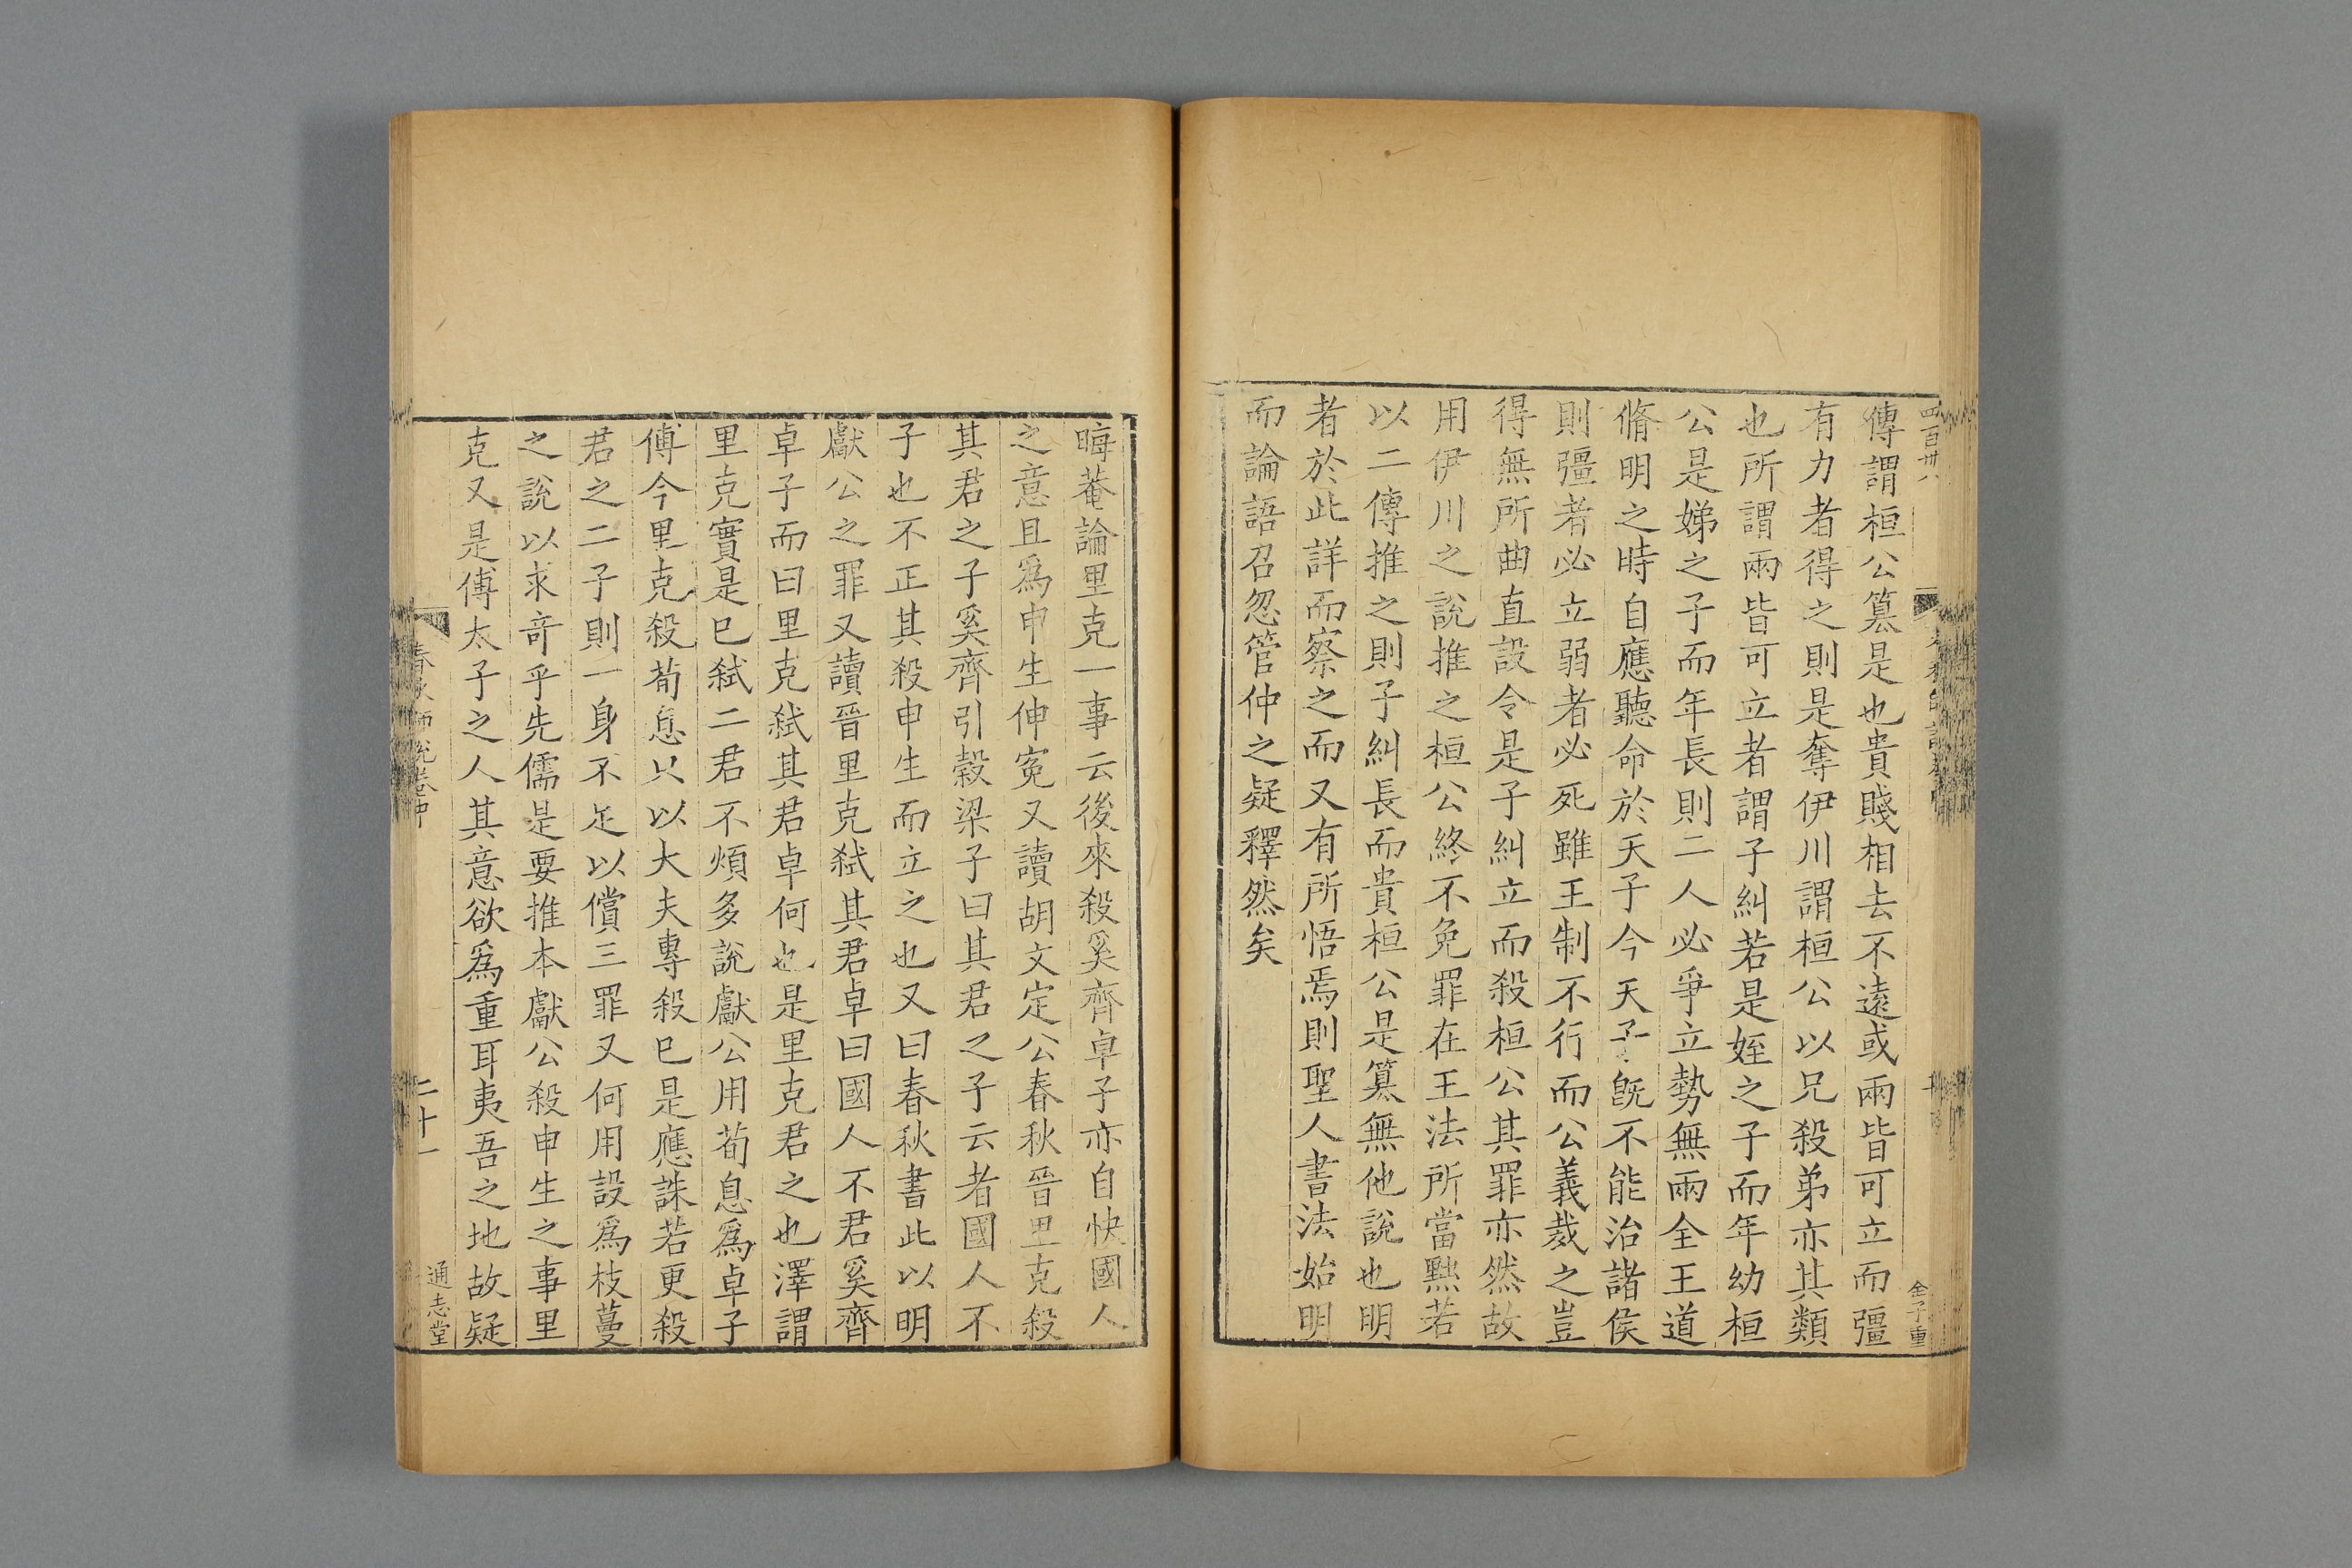 四百卅八
傳謂桓公篡是也貴賤相去不遠或兩皆可立而彊
有力者得之則是奪伊川謂桓公以兄殺弟亦其類
也所謂兩皆可立者謂子糾若是姪之子而年幼桓
公是娣之子而年長則二人必爭立勢無兩全王道
脩明之時自應聽命於天子今天子旣不能治諸侯
則彊者必立弱者必死雖王制不行而公義裁之豈
得無所曲直設令是子糾立而殺桓公其罪亦然故
用伊川之說推之桓公終不免罪在王法所當黜若
以二傳推之則子糾長而貴桓公是篡無他說也明
者於此詳而察之而又有所悟焉則聖人書法始明
而論語召忽管仲之疑釋然矣
金子重
晦菴論里克一事云後來殺奚齊卓子亦自快國人
之意且爲申生伸冤又讀胡文定公春秋晉里克殺
其君之子奚齊引穀梁子曰其君之子云者國人不
子也不正其殺申生而立之也又曰春秋書此以明
獻公之罪又讀晉里克弑其君卓曰國人不君奚齊
卓子而曰里克弑其君卓何也是里克君之也澤謂
里克實是巳弑二君不煩多說獻公用荀息爲卓子
傅今里克殺荀息只以大夫專殺巳是應誅若更殺
君之二子則一身不足以償三罪又何用設爲枝蔓
之說以求竒乎先儒是要推本獻公殺申生之事里
克又是傅太子之人其意欲爲重耳夷吾之地故疑
春秋師說卷中
二十一
通志堂